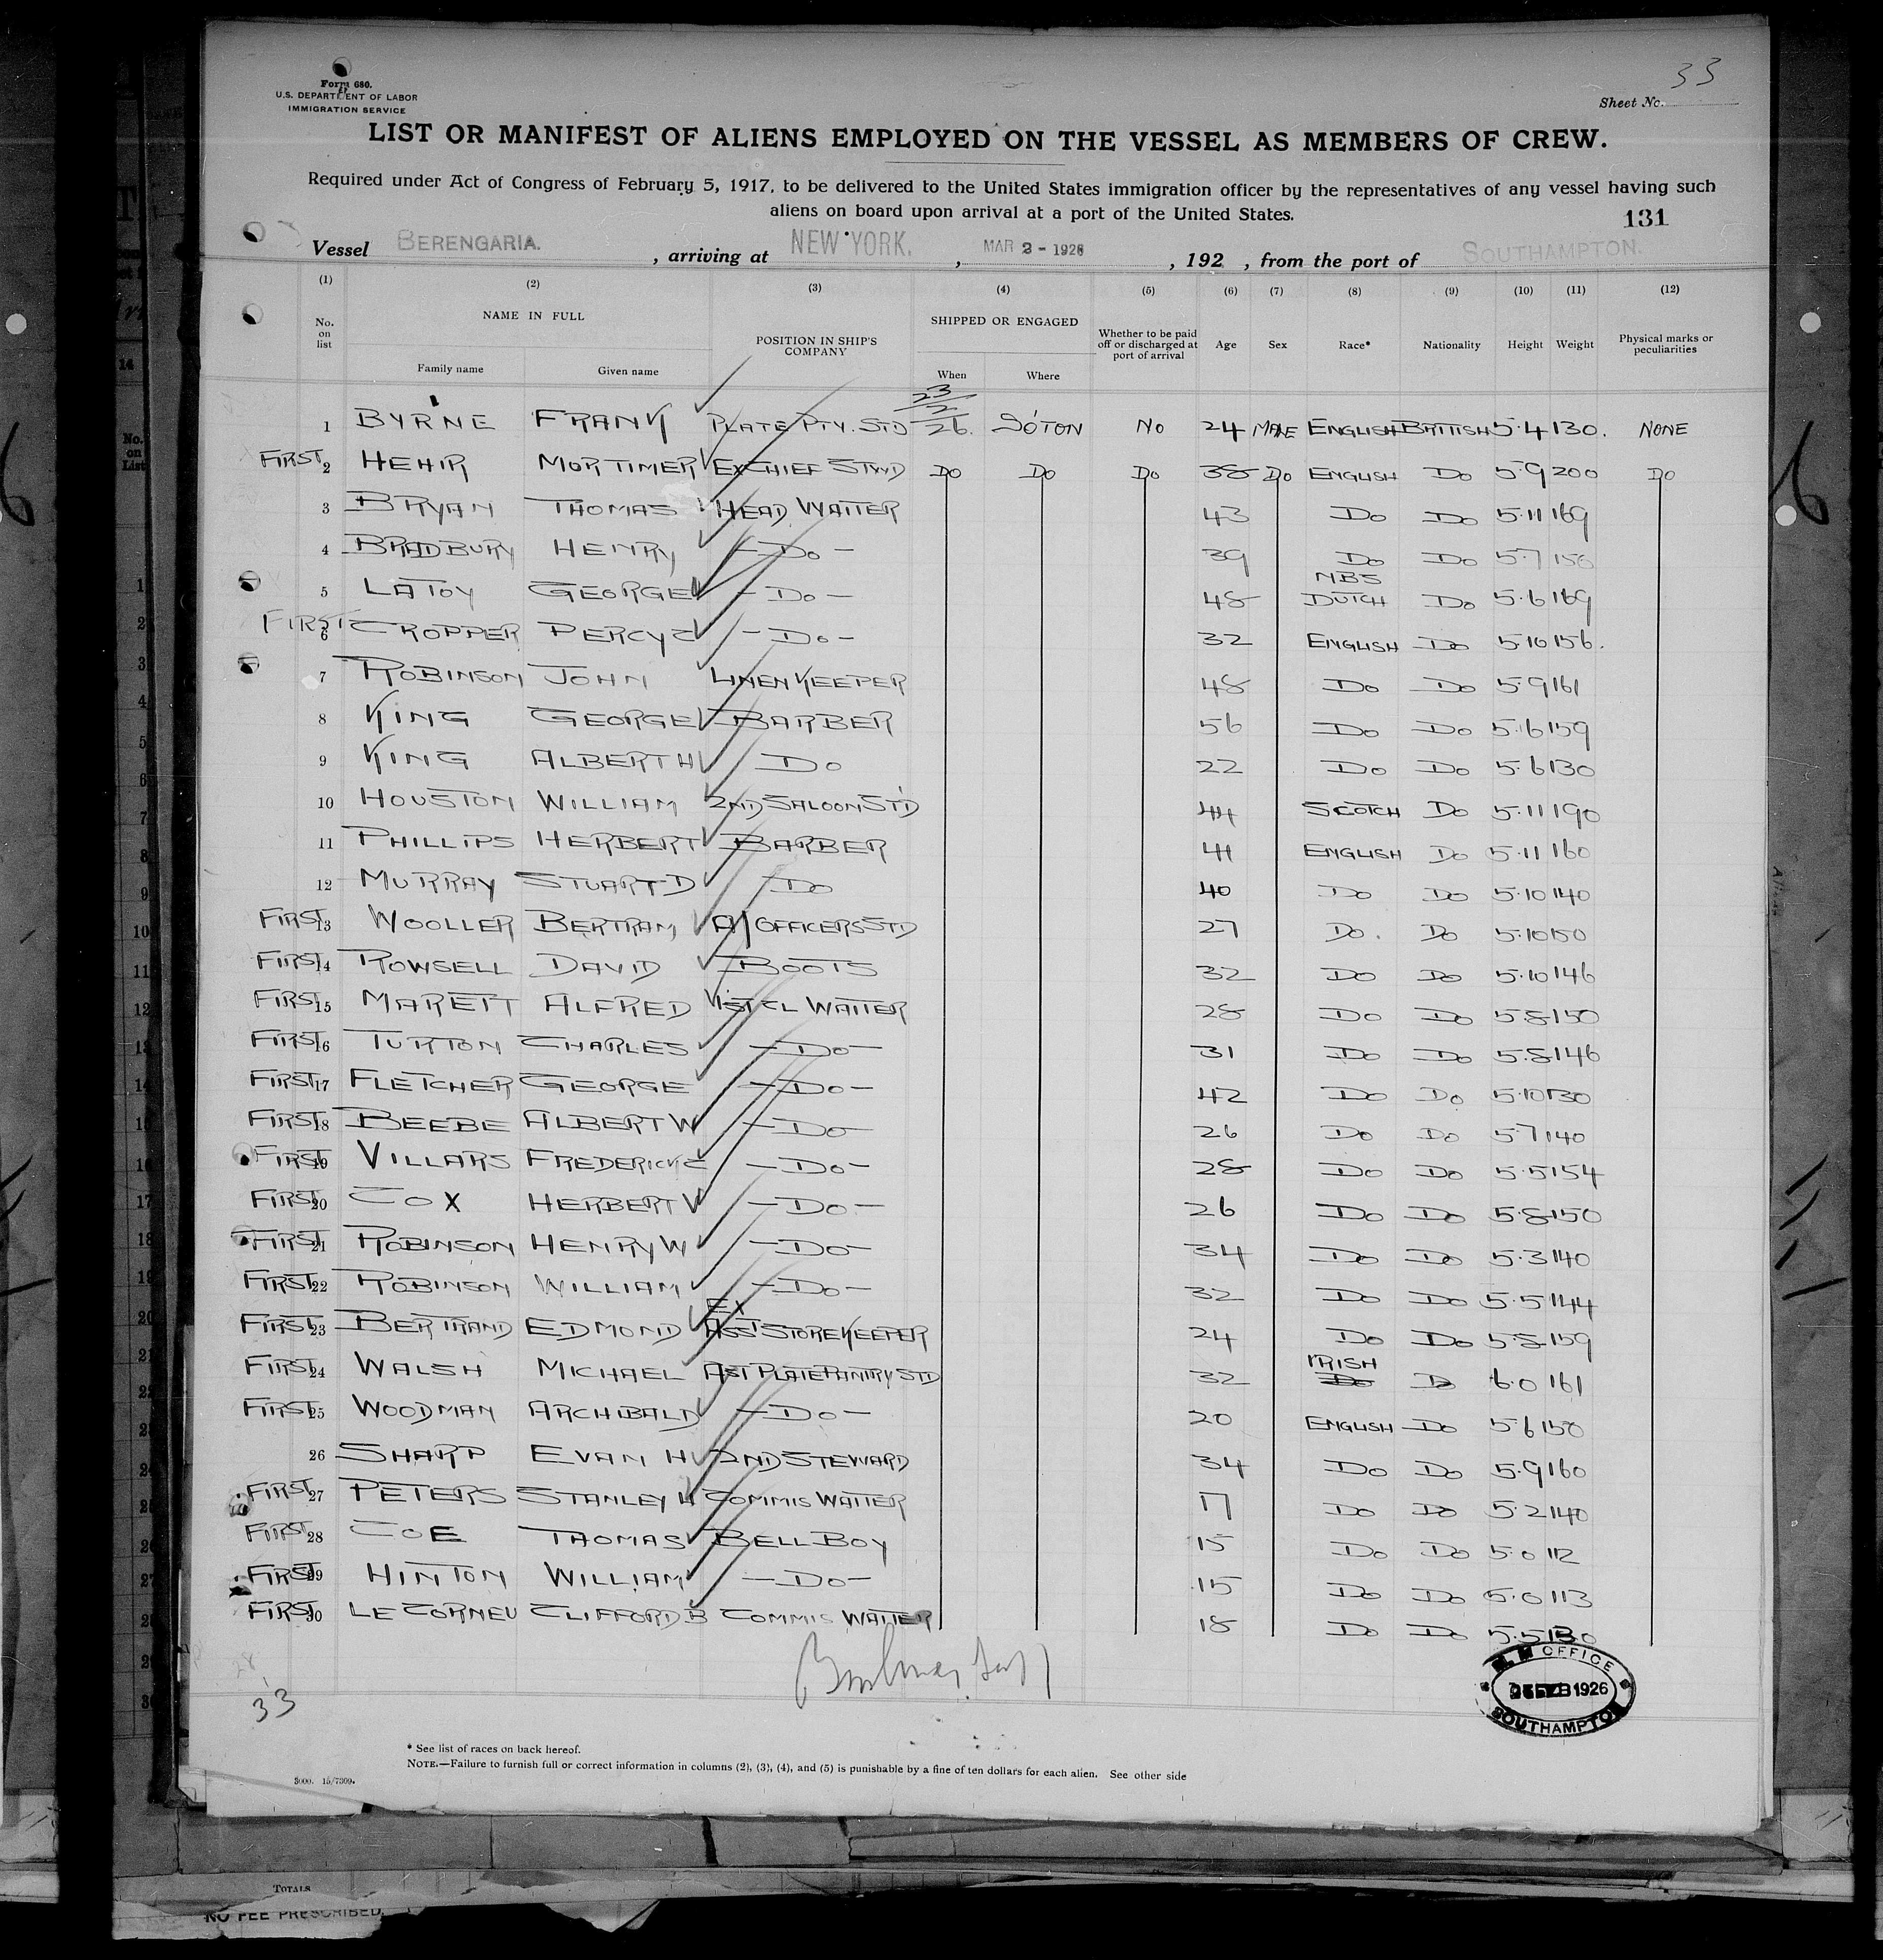 33
Form 680.
U.S. DEPARTMENT OF LABOR
IMMIGRATION SERVICE
Sheet No.
LIST OR MANIFEST OF ALIENS EMPLOYED ON THE VESSEL AS MEMBERS OF CREW.
Required under Act of Congress of February 5, 1917, to be delivered to the United States immigration officer by the representatives of any vessel having such
aliens on board upon arrival at a port of the United States.
131
Vessel BERENGARIA. , arriving at NEW YORK. , MAR 2 - 1926 , 192 , from the port of SOUTHAMPTON.
(1) (2) (3) (4) (5) (6) (7) (8) (9) (10) (11) (12)
No. on list NAME IN FULL Family name Given name POSITION IN SHIP'S COMPANY SHIPPED OR ENGAGED When Where Whether to be paid off or discharged at port of arrival Age Sex Race* Nationality Height Weight Physical marks or peculiarities
1 BYRNE FRANK PLATE PTY. STD 23/2/26. SO'TON NO 24 MALE ENGLISH BRITISH 5.4 130. NONE
FIRST 2 HEHIR MORTIMER EX CHIEF STWD DO DO DO 38 DO ENGLISH DO 5.9 200 DO
3 BRYAN THOMAS HEAD WAITER 43 DO DO 5.11 169
4 BRADBURY HENRY - DO - 39 DO DO 5.7 156
5 LATOY GEORGE - DO - 48 DUTCH DO 5.6 169
FIRST 6 CROPPER PERCY C - DO - 32 ENGLISH DO 5.10 156.
7 ROBINSON JOHN LINEN KEEPER 48 DO DO 5.9 161
8 KING GEORGE BARBER 56 DO DO 5.6 159
9 KING ALBERT H DO 22 DO DO 5.6 130
10 HOUSTON WILLIAM 2ND SALOON ST'D 44 SCOTCH DO 5.11 190
11 PHILLIPS HERBERT BARBER 41 ENGLISH DO 5.11 160
12 MURRAY STUART D DO 40 DO DO 5.10 140
FIRST 13 WOOLLER BERTRAM A/ OFFICERS STD 27 DO. DO 5.10 150
FIRST 14 ROWSELL DAVID BOOTS 32 DO DO 5.10 146
FIRST 15 MARETT ALFRED 1ST CL WAITER 28 DO DO 5.8 150
FIRST 16 TURTON CHARLES - DO - 31 DO DO 5.8 146
FIRST 17 FLETCHER GEORGE - DO - 42 DO DO 5.10 130
FIRST 18 BEEBE ALBERT W - DO - 26 DO DO 5.7 140
FIRST 19 VILLARS FREDERICK C - DO - 28 DO DO 5.5 154
FIRST 20 COX HERBERT V - DO - 26 DO DO 5.8 150
FIRST 21 ROBINSON HENRY W - DO - 34 DO DO 5.3 140
FIRST 22 ROBINSON WILLIAM - DO - 32 DO DO 5.5 144
FIRST 23 BERTRAND EDMOND EX ASST STOREKEEPER 24 DO DO 5.8 159
FIRST 24 WALSH MICHAEL AST PLATE PANTRY STD 32 IRISH DO 6.0 161
FIRST 25 WOODMAN ARCHIBALD - DO - 20 ENGLISH DO 5.6 150
26 SHARP EVAN H 2ND STEWARD 34 DO DO 5.9 160
FIRST 27 PETERS STANLEY H COMMIS WAITER 17 DO DO 5.2 140
FIRST 28 COE THOMAS BELL BOY 15 DO DO 5.0 112
FIRST 29 HINTON WILLIAM - DO - 15 DO DO 5.0 113
FIRST 30 LE CORNEU CLIFFORD B COMMIS WAITER 18 DO DO 5.5 130
33
OFFICE
FEB 1926
SOUTHAMPTON
* See list of races on back hereof.
NOTE.—Failure to furnish full or correct information in columns (2), (3), (4), and (5) is punishable by a fine of ten dollars for each alien. See other side
3000. 15/7309.
TOTALS
NO FEE PRESCRIBED.